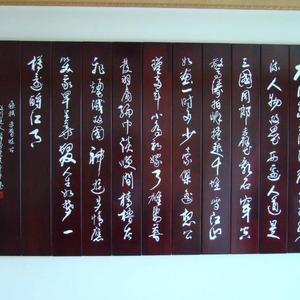 流人物故壘西邊人道是
三國周郎赤壁亂石穿空
驚濤拍岸捲起千堆雪江山
如畫一時多少豪傑遙想公
瑾當年小喬初嫁了雄姿英
發羽扇綸巾談笑間檣櫓灰
飛煙滅故國神遊多情應
笑我早生華髮人生如夢一
樽還酹江月